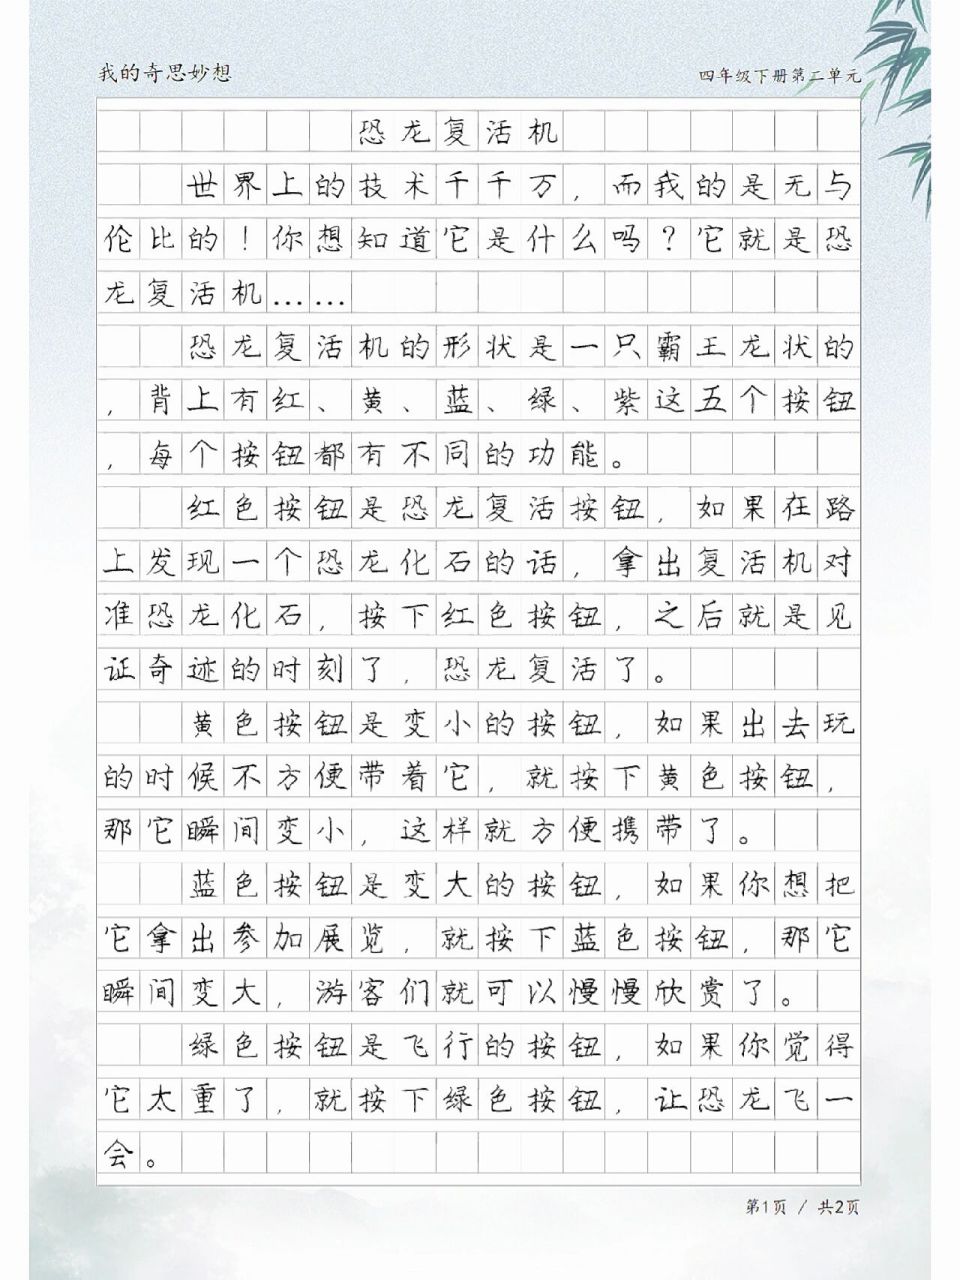 我的奇思妙想
四年级下册第二单元
恐龙复活机
世界上的技术千千万，而我的是无与
伦比的！你想知道它是什么吗？它就是恐
龙复活机……
恐龙复活机的形状是一只霸王龙状的
，背上有红、黄、蓝、绿、紫这五个按钮
，每个按钮都有不同的功能。
红色按钮是恐龙复活按钮，如果在路
上发现一个恐龙化石的话，拿出复活机对
准恐龙化石，按下红色按钮，之后就是见
证奇迹的时刻了，恐龙复活了。
黄色按钮是变小的按钮，如果出去玩
的时候不方便带着它，就按下黄色按钮，
那它瞬间变小，这样就方便携带了。
蓝色按钮是变大的按钮，如果你想把
它拿出参加展览，就按下蓝色按钮，那它
瞬间变大，游客们就可以慢慢欣赏了。
绿色按钮是飞行的按钮，如果你觉得
它太重了，就按下绿色按钮，让恐龙飞一
会。
第1页 / 共2页